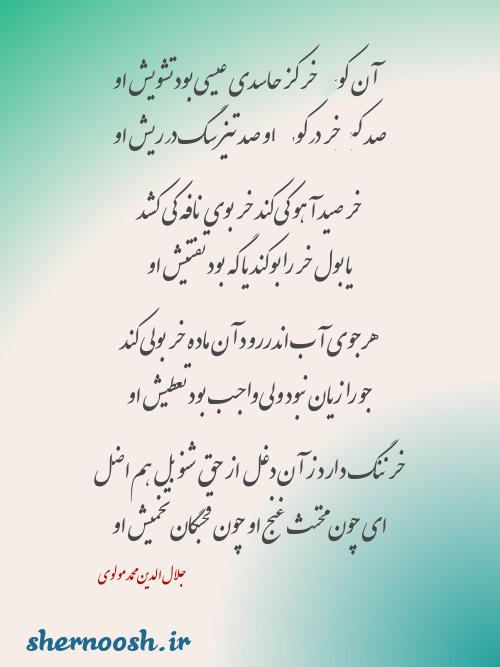 آن کو خر کز حاسدی عیسی بود تشویش او
صد کـ خر در کو او صد تیز سگ در ریش او
خر صید آهو کی کند خر بوی نافه کی کشد
یا بول خر را بو کند یا گه بود تفتیش او
هر جوی آب اندر رود آن ماده خر بولی کند
جو را زیان نبود ولی واجب بود تعطیش او
خر ننگ دارد ز آن دغل از حق شنو بل هم اضل
ای چون مخنث غنج او چون قحبگان تخمیش او
جلال الدین محمد مولوی
shernoosh.ir